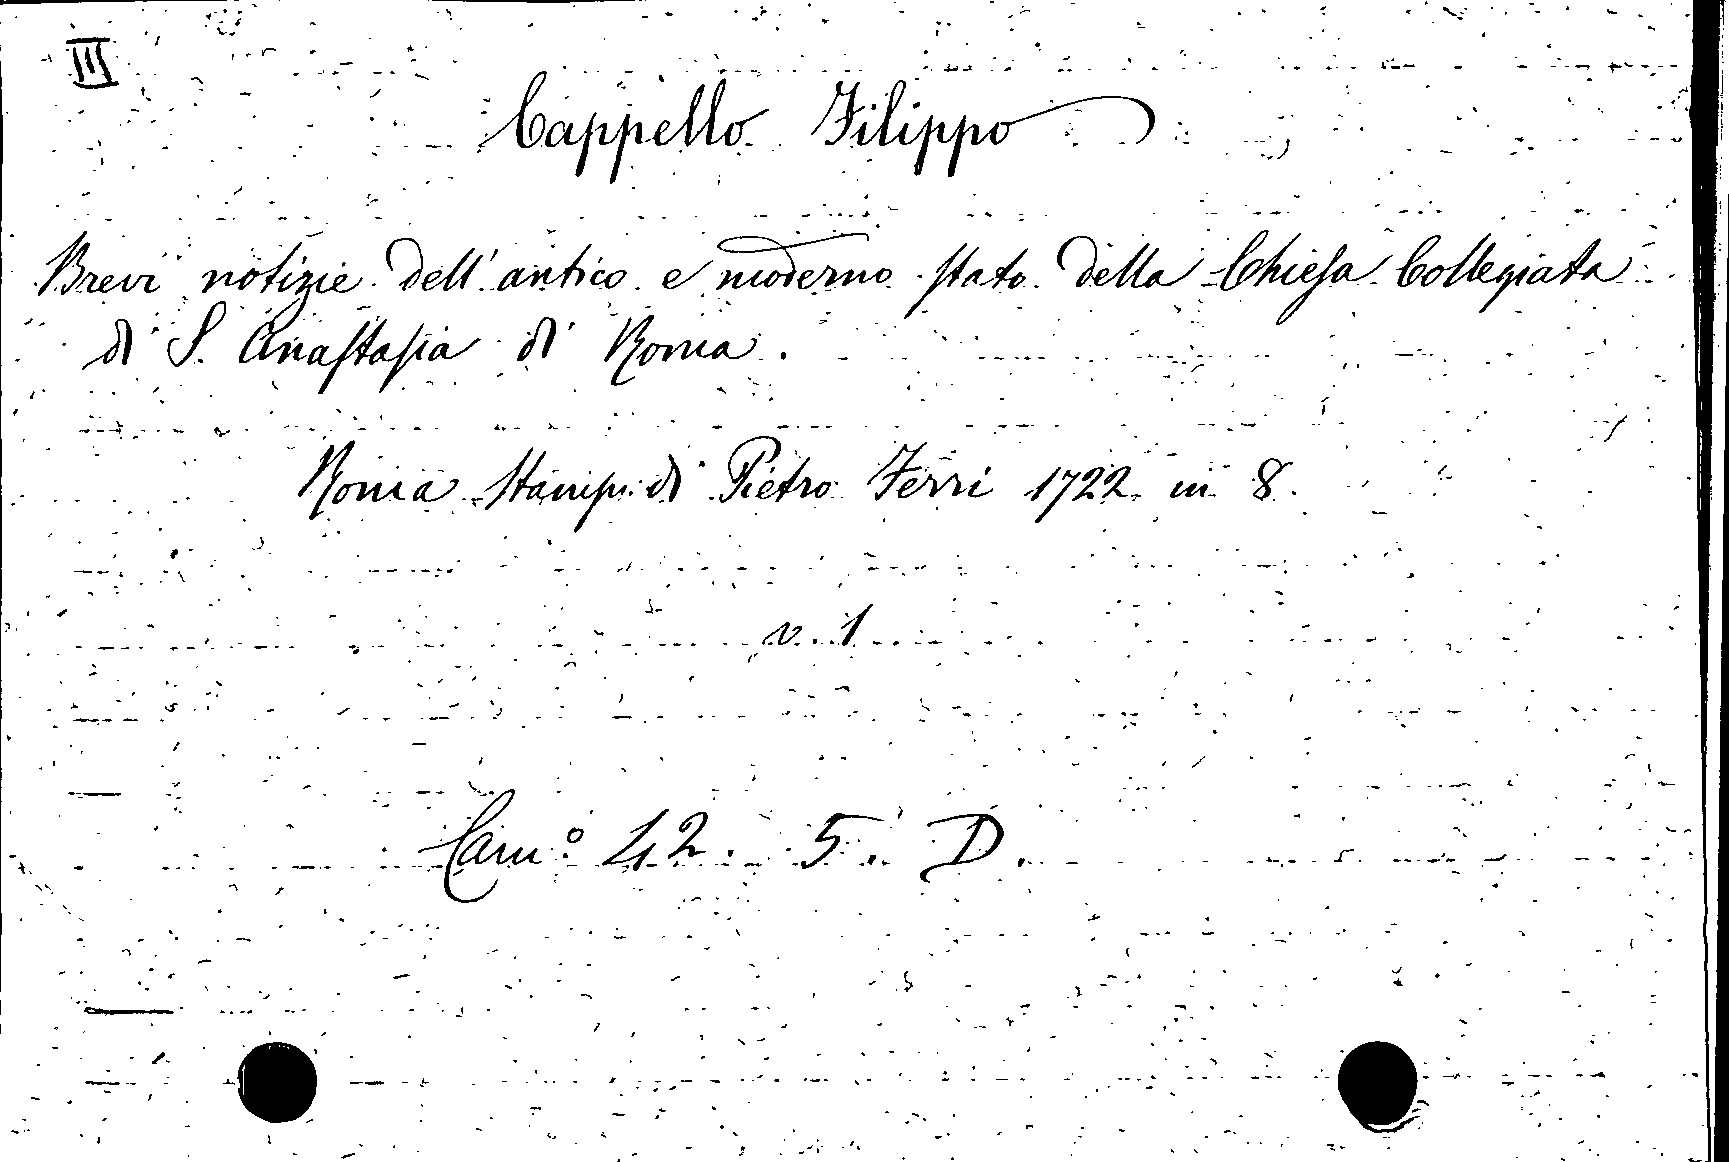 III
Cappello Filippo
Brevi notizie dell'antico e moderno stato della Chiesa Collegiata
di S. Anastasia di Roma.
Roma Stamp. di Pietro Ferri 1722 in 8.
v. 1
Cam.° 42. 5. D.